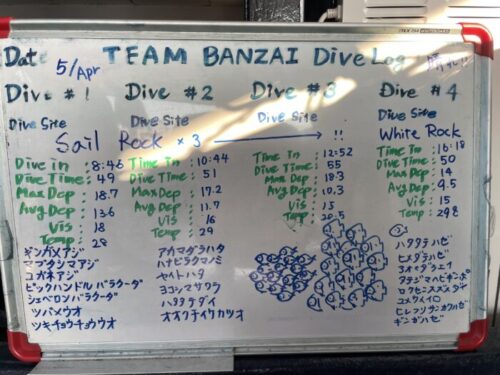 Date 5/Apr TEAM BANZAI Dive Log
Dive #1 Dive #2 Dive #3 Dive #4
Dive Site Dive Site Dive Site Dive Site
Sail Rock × 3 → !! White Rock
Dive in : 8:46
Dive Time : 49
Max Dep : 18.7
Avg Dep : 13.6
Vis : 18
Temp : 28
Time In : 10:44
Dive Time : 51
Max Dep : 17.2
Avg Dep : 11.7
Vis : 16
Temp : 29
Time In : 12:52
Dive Time : 55
Max Dep : 18.3
Avg Dep : 10.3
Vis : 15
Temp :
Time In : 16:18
Dive Time : 50
Max Dep : 14
Avg Dep : 9.5
Vis : 15
Temp : 29
ギンガメアジ
マブタシマアジ
コガネアジ
ピックハンドルバラクーダ
シェベロンバラクーダ
ツバメウオ
ツキチョウチョウウオ
アカマダラハタ
ハナビラクマノミ
ヤイトハタ
ヨコシマサワラ
ハタタテダイ
オオクチイケカツオ
ハタタテハゼ